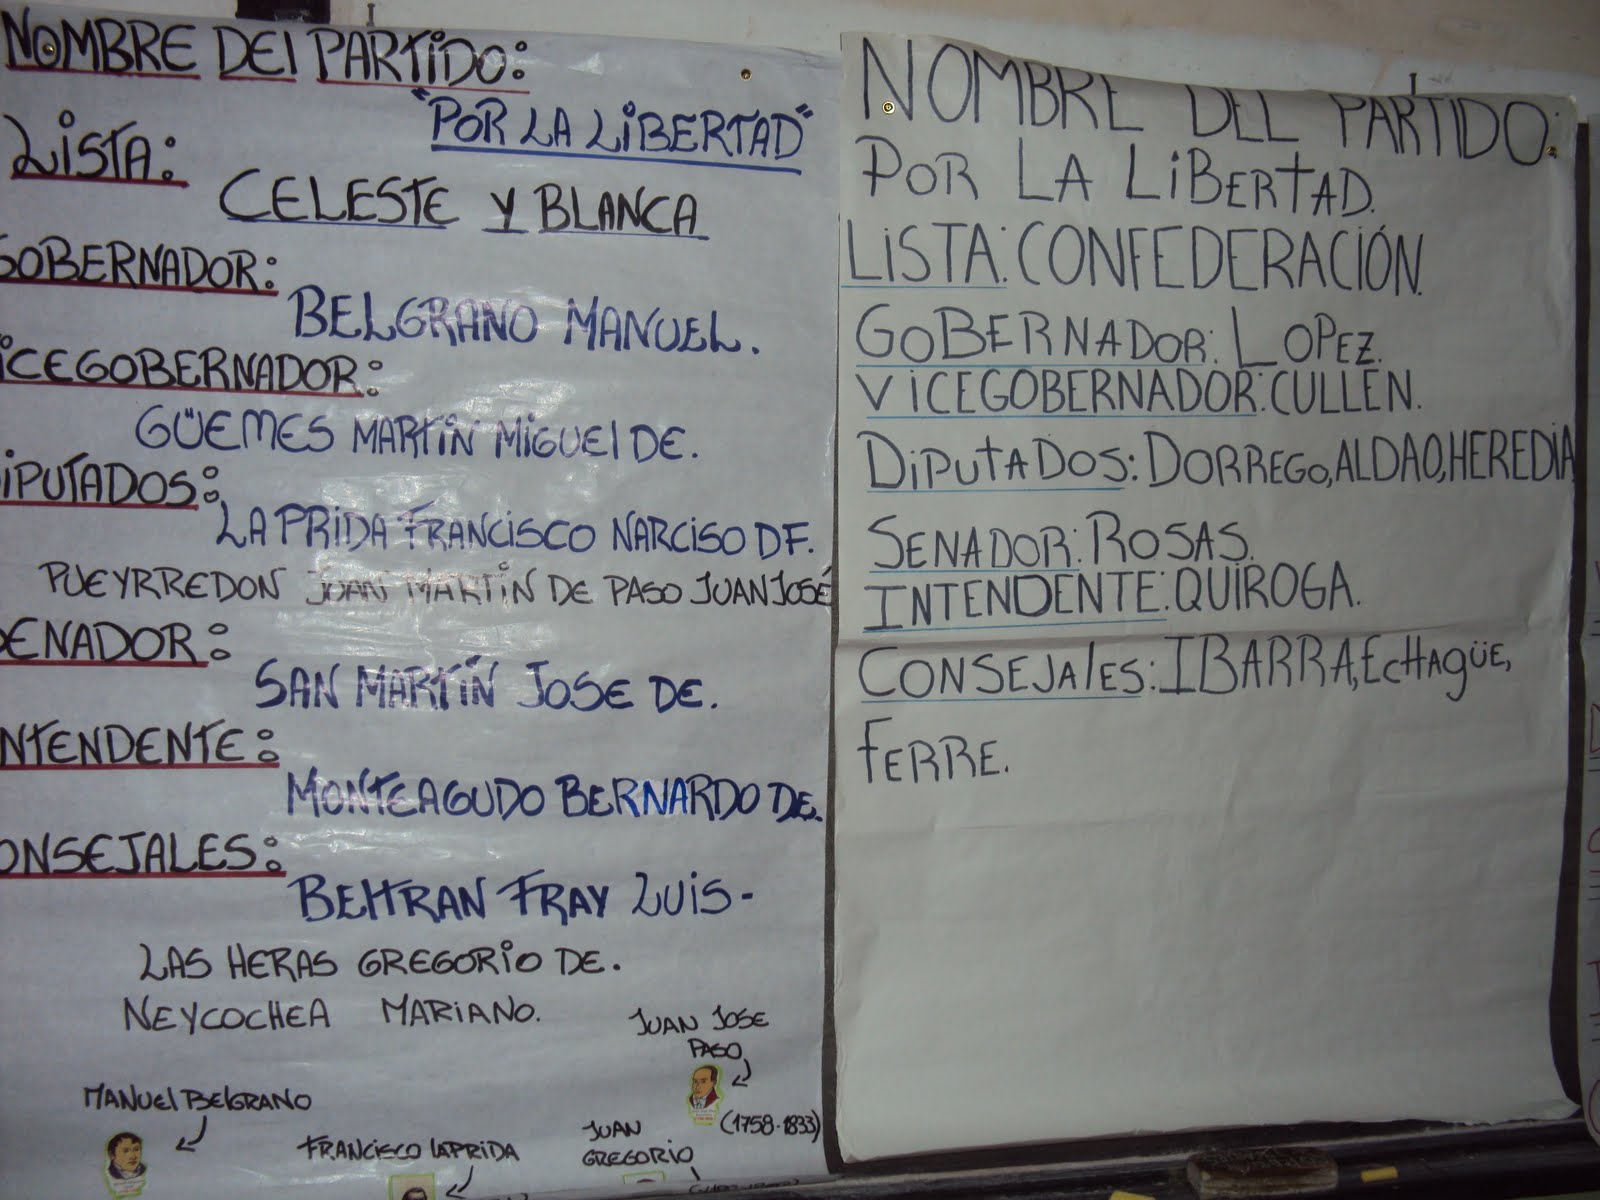 NOMBRE DEl PARTiDO:
"POR LA LiBERTAD"
LiSTA:
CELESTE Y BLANCA
GOBERNADOR:
BELGRANO MANUEL.
ICEGOBERNADOR:
GÜEMES MARTiN MiGUEl DE.
iPUTADOS:
LA PRiDA FRANCiSCO NARCiSO DE.
PUEYRREDON JUAN MARTiN DE PASO JUAN JOSÉ
ENADOR:
SAN MARTíN JOSE DE.
NTENDENTE:
MONTEAGUDO BERNARDO DE.
ONSEJALES:
BELTRAN FRAY LUiS-
LAS HERAS GREGORiO DE.
NEYCOCHEA MARiANO.
JUAN JOSE
PASO
(1758-1833)
MANUEl BElGRANO
FRANCiSCO lAPRiDA
JUAN
GREGORiO
NOMBRE DEL PARTIDO:
POR LA LiBERTAD.
LiSTA: CONFEDERACIÓN.
GOBERNADOR: LOPEZ.
VICEGOBERNADOR: CULLEN.
DiPUTADOS: DORREGO, ALDAO, HEREDIA
SENADOR: ROSAS.
INTENDENTE: QUIROGA.
CONSEJAlES: IBARRA, EcHAGÜE,
FERRE.